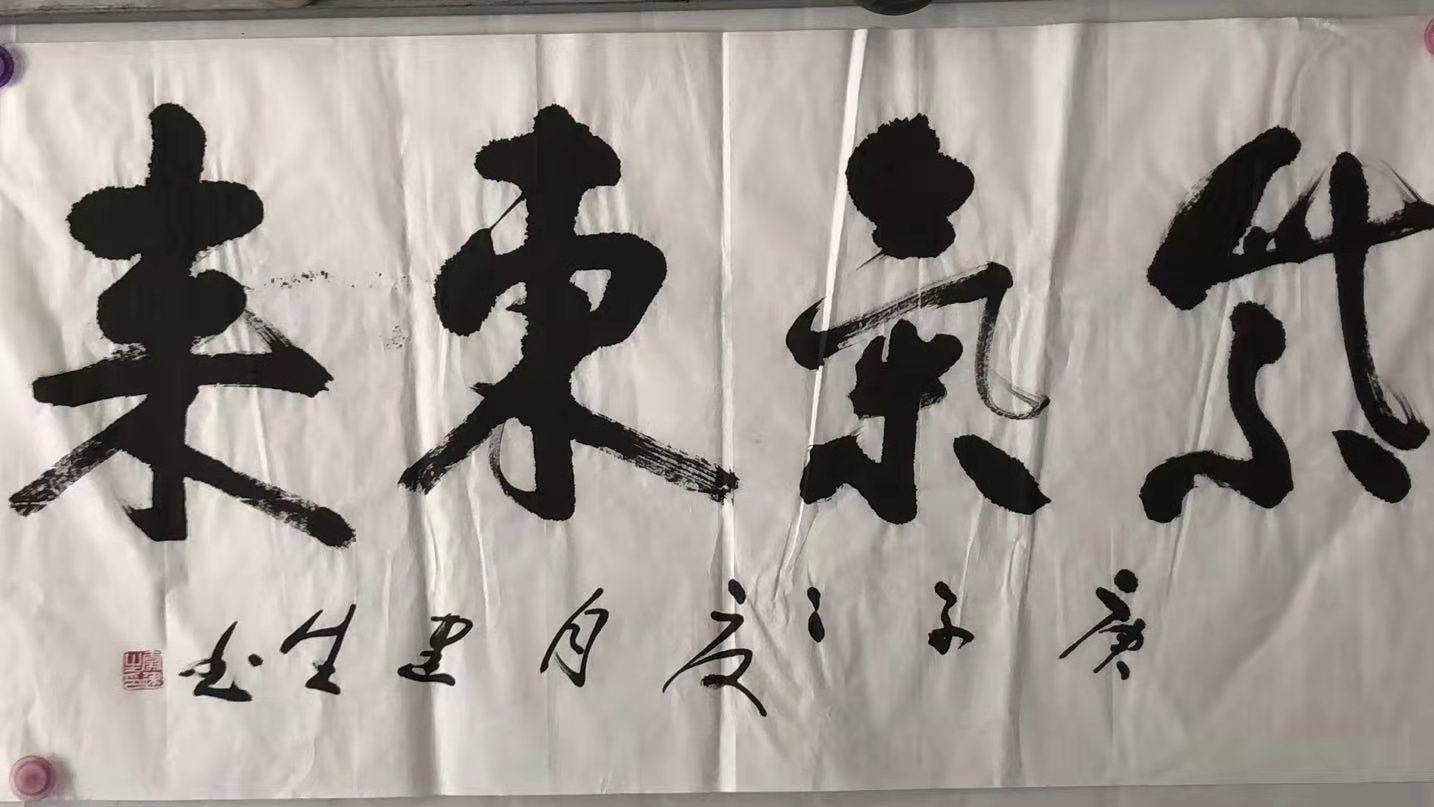 紫氣東來
庚子之夏月建生书